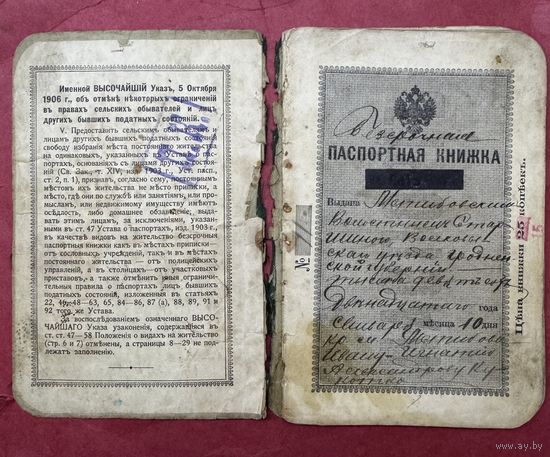 Именной ВЫСОЧАЙШІЙ Указъ, 5 Октября
1906 г., объ отмѣнѣ нѣкоторыхъ ограниченій
въ правахъ сельскихъ обывателей и лицъ
другихъ бывшихъ податныхъ состояній.
V. Предоставить сельскимъ обывателямъ и
лицамъ другихъ бывшихъ податныхъ состояній
свободу избранія мѣста постояннаго
на одинаковыхъ, указанныхъ въ уставѣ о пас-
портахъ, основаніяхъ съ лицами другихъ состояній
(Св. Зак., т. XIV, изд. 1903 г., Уст. пасп.,
ст. 2, п. 1), признавъ, согласно сему, постояннымъ
мѣстомъ ихъ жительства не мѣсто приписки,
а мѣсто, гдѣ они по службѣ или занятіямъ, про-
мысламъ, или недвижимому имуществу имѣютъ
осѣдлость, либо домашнее обзаведеніе, выда-
вать этимъ лицамъ, за исключеніями, указан-
ными въ ст. 47 Устава о паспортахъ, изд. 1903 г.,
въ качествѣ видовъ на жительство безсрочныя
паспортныя книжки какъ въ мѣстахъ приписки
отъ сословныхъ учрежденій, такъ и въ мѣстахъ
постояннаго жительства — отъ полицейскихъ
управленій, а въ столицахъ — отъ участковыхъ
приставовъ, а также отмѣнить иныя ограничи-
тельныя правила о паспортахъ лицъ бывшихъ
податныхъ состояній, изложенныя въ статьяхъ
22, 46, 48—63, 65, 84—86, 87 а), 88, 89, 91 и
92 того же Устава.
За воспослѣдованіемъ означеннаго ВЫСО-
ЧАЙШАГО Указа узаконенія, содержащіяся въ
ст. ст. 47—58 Положенія о видахъ на жительство
(стр. 6 и 7) отмѣнены, а страницы 8—29 не под-
лежатъ заполненію.
Безсрочная
ПАСПОРТНАЯ КНИЖКА
Выдана
Волостнымъ Стар
шиною Волковы
скаго уѣзда Гроднен
ской губерніи
тысяча девятьсотъ
двѣнадцатаго года
Января мѣсяца 10 дня
Ивану
Александрову
№
Цѣна книжки 25 копѣекъ.
15
www.ay.by